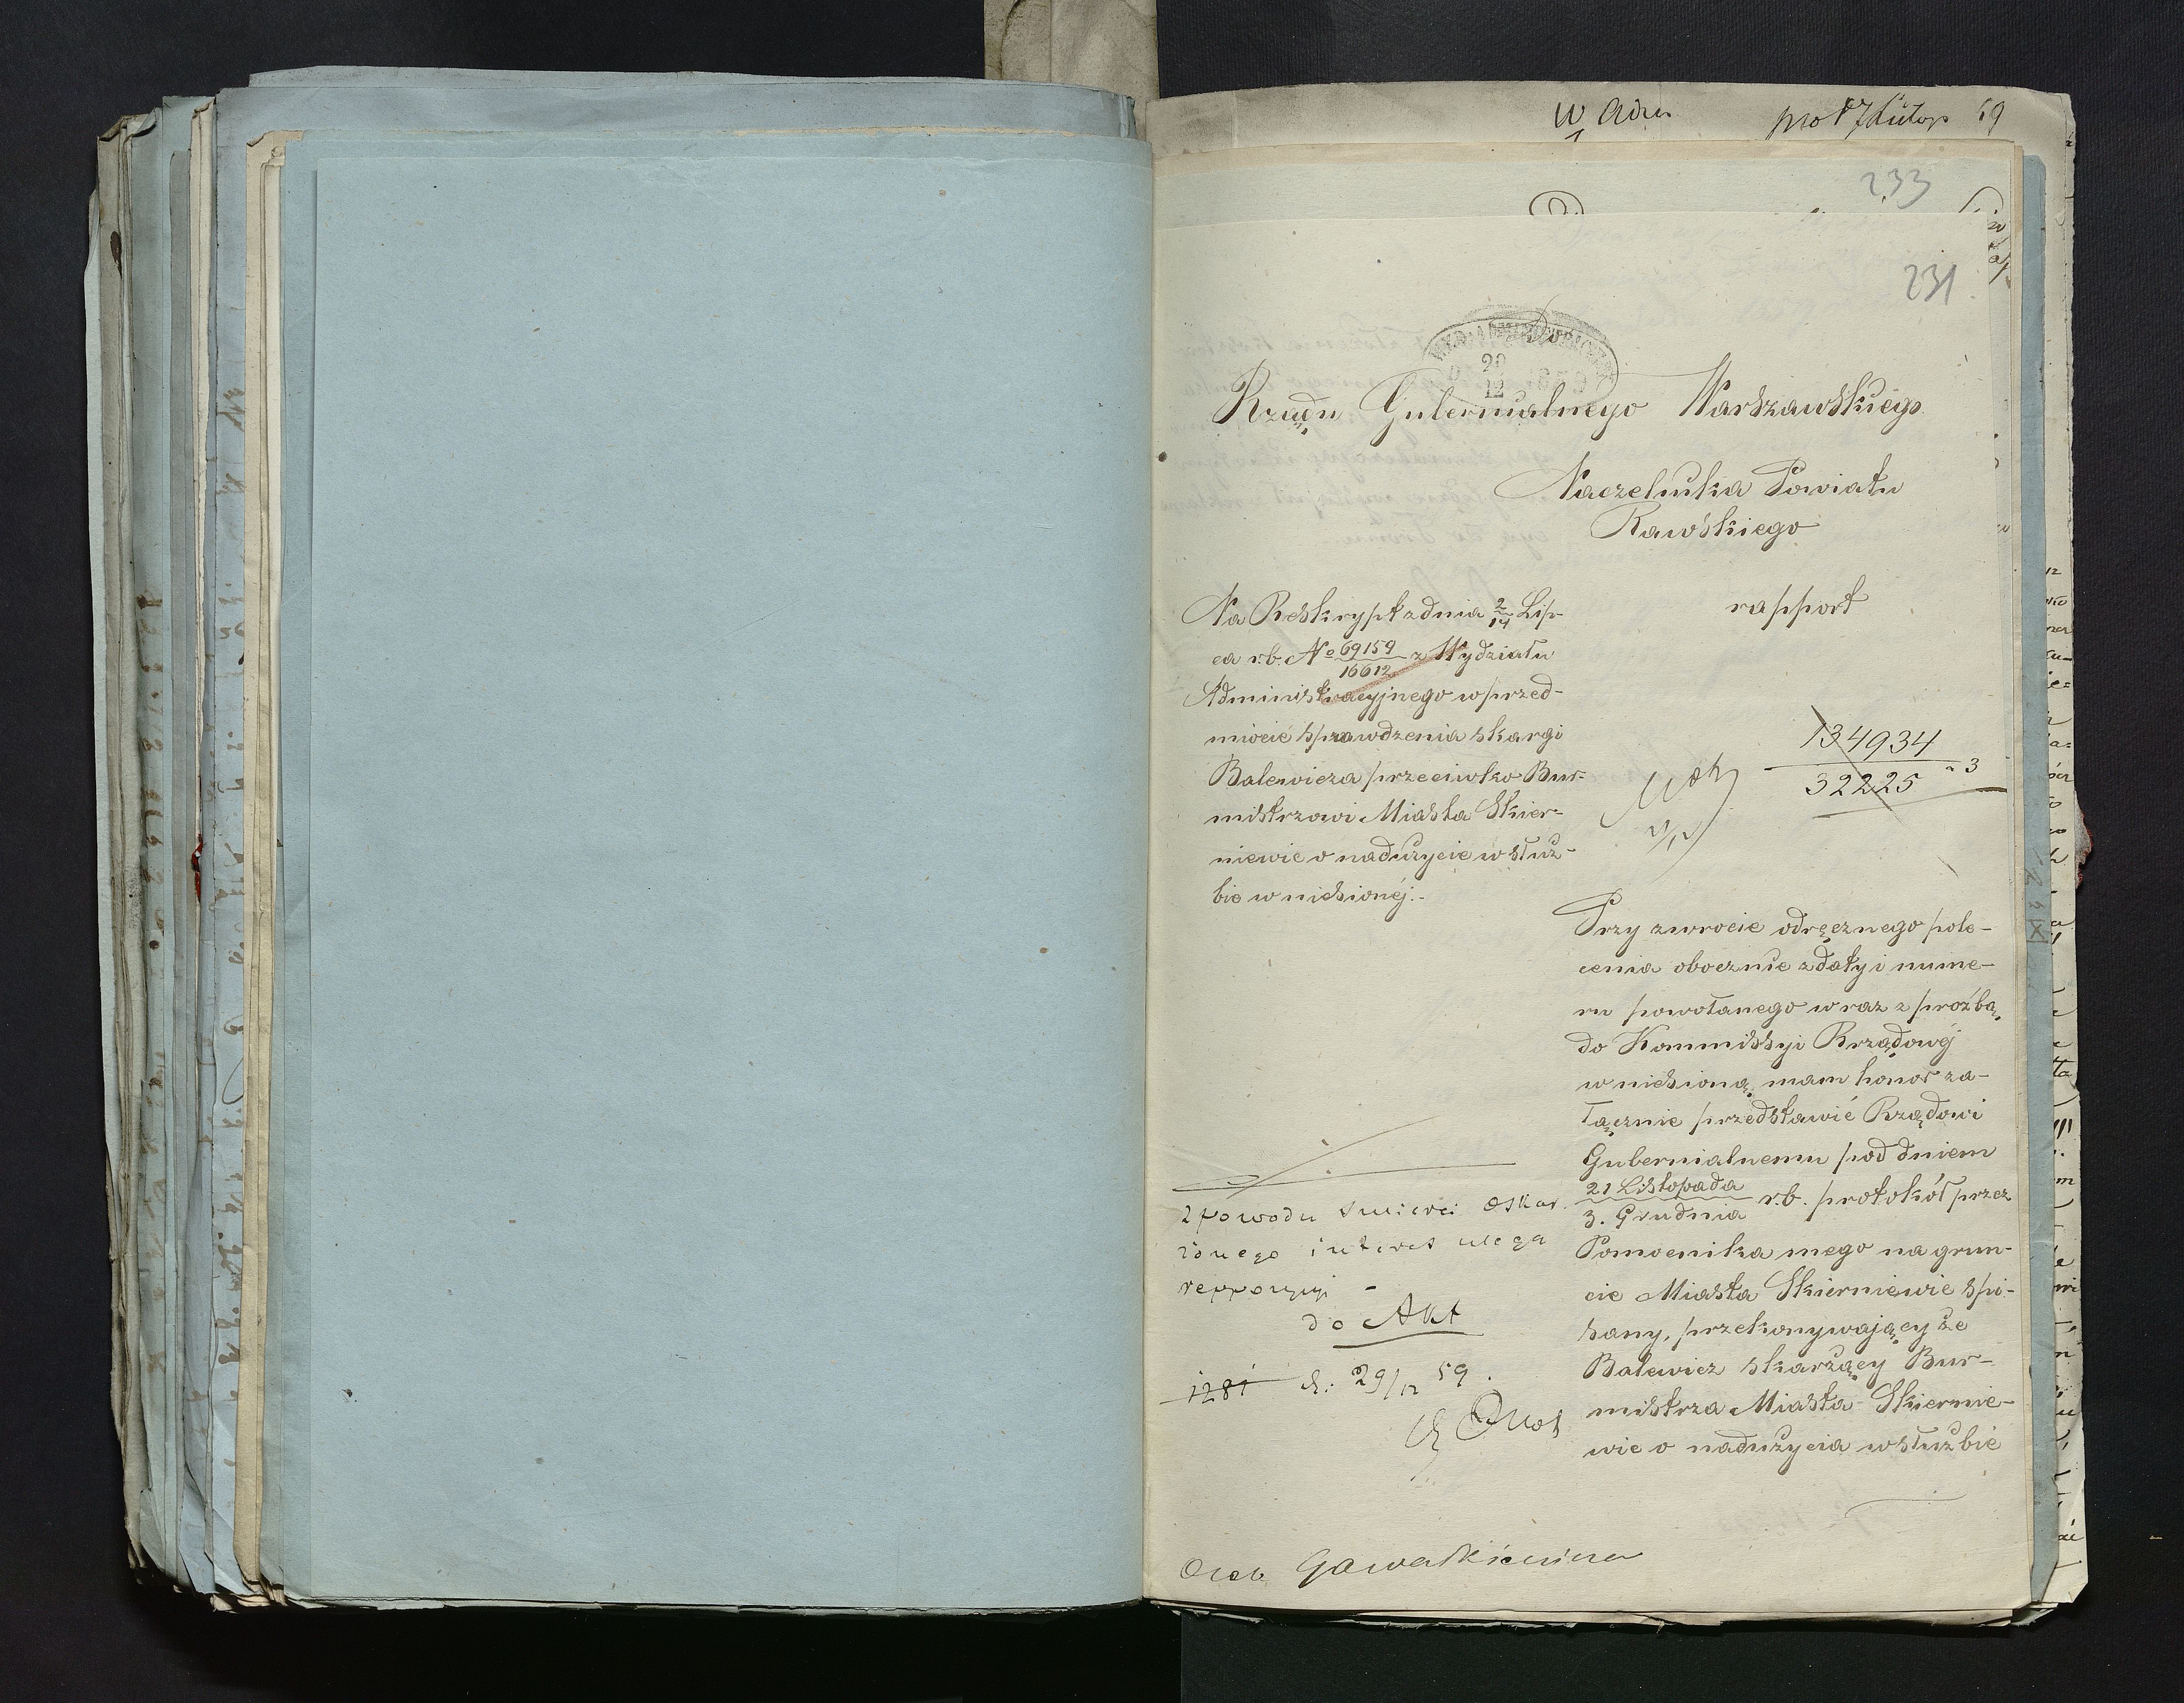 W Adm
233
231
Do
20
12
Rządu Gubernialnego Warszawskiego
Naczelnika Powiatu
Rawskiego
rapport
Na Reskrypt z dnia 2/14 Lip-
ca r.b. No 69159/16612 z Wydziału
Administracyjnego w przed-
miocie sprawdzenia skargi
Balewicza przeciwko Bur-
mistrzowi Miasta Skier-
niewic o nadużycie w służ-
bie wniesionéj.-
134934
32225 - 3
Przy zwrocie odręcznego pole-
cenia obocznie z daty i nume-
ru powołanego wraz z proźbą,
do Kommissyi Rządowéj
wniesioną, mam honor za-
łącznie przedstawić Rządowi
Gubernialnemu pod dniem
21 Listopada
3. Grudnia r.b. protokół przez
Pomocnika mego na grun-
cie Miasta Skierniewic spi-
sany, przekonywający że
Balewicz skarżący Bur-
mistrza Miasta Skiernie-
wic o nadużycia w służbie
z powodu śmierci oskar-
żonego interes ulega
reppozycyi -
do Akt
1281 d: 29/12 59.